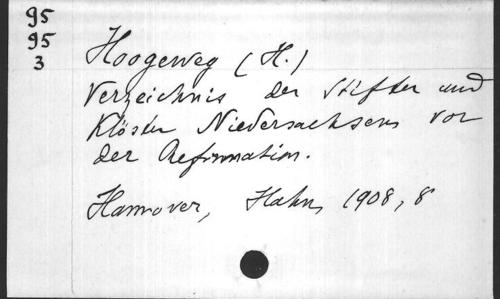 95
95
3
Hoogeweg (H.)
Verzeichnis der Stifter und
Klöster Niedersachsens vor
der Reformation.
Hannover, Hahn, 1908, 8°